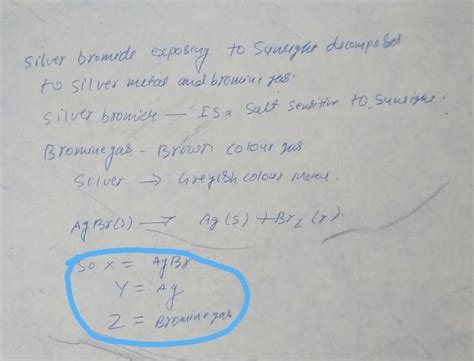 Silver bromide exposing to Sunlight decomposed
to silver metal and bromine gas.
Silver bromide — IS a Salt sensitive to Sunlight.
Bromine gas - Brown colour gas.
Silver → Greyish colour Metal.
AgBr(s) → Ag(s) + Br2(g).
So X = AgBr
Y = Ag
Z = Bromine gas